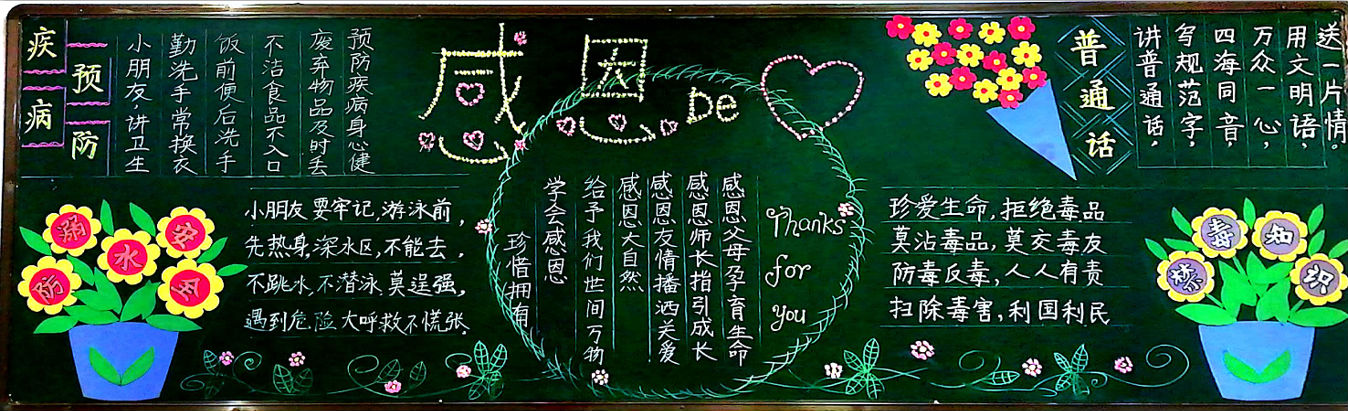 疾病
预防
小朋友,讲卫生
勤洗手常换衣
饭前便后洗手
不洁食品不入口
废弃物品及时丢
预防疾病身心健
防溺水安全
小朋友要牢记,游泳前,
先热身,深水区,不能去,
不跳水,不潜泳,莫逞强,
遇到危险大呼救不慌张.
感恩De
Thanks
for
you
感恩父母孕育生命
感恩师长指引成长
感恩友情播洒关爱
感恩大自然
给予我们世间万物
学会感恩
珍惜拥有
普通话
讲普通话,
写规范字,
四海同音,
万众一心,
用文明语,
送一片情。
珍爱生命,拒绝毒品
莫沾毒品,莫交毒友
防毒反毒,人人有责
扫除毒害,利国利民
禁毒知识